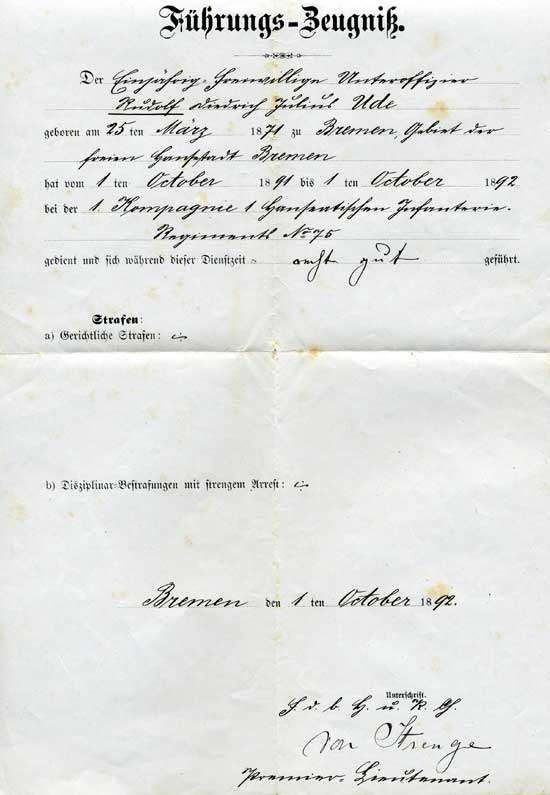 Führungs-Zeugniß.
Der Einjährig-Freiwillige Unteroffizier
Rudolf Diedrich Julius Ude
geboren am 25 ten März 1871 zu Bremen, Gebiet der
freien Hansestadt Bremen
hat vom 1 ten October 1891 bis 1 ten October 1892
bei der 1. Kompagnie 1 Hanseatischen Infanterie-
Regiments No 75
gedient und sich während dieser Dienstzeit recht gut geführt.
Strafen:
a) Gerichtliche Strafen:
b) Disziplinar-Bestrafungen mit strengem Arrest:
Bremen den 1 ten October 1892.
Unterschrift.
F. d. b. H. u. K. Ch.
von Strenge
Premier-Lieutenant.